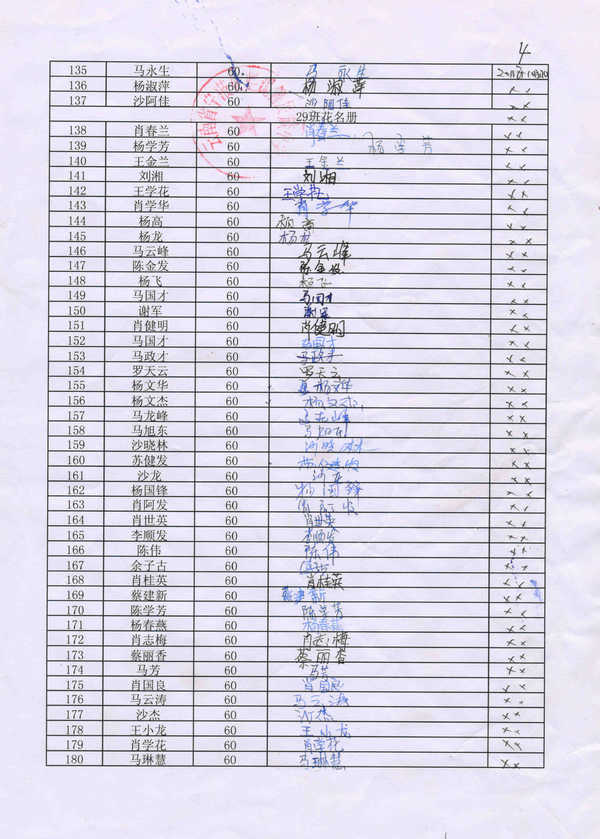 4
135 马永生 60 马永生
136 杨淑萍 60 杨淑萍 ××
137 沙阿佳 60 沙阿佳 ××
29班花名册
138 肖春兰 60 肖春兰 ××
139 杨学芳 60 杨学芳 ××
140 王金兰 60 王金兰 ××
141 刘湘 60 刘湘 ××
142 王学花 60 王学花 ××
143 肖学华 60 肖学华 ××
144 杨高 60 杨高 ××
145 杨龙 60 杨龙 ××
146 马云峰 60 马云峰 ××
147 陈金发 60 陈金发 ××
148 杨飞 60 杨飞 ××
149 马国才 60 马国才 ××
150 谢军 60 谢军 ××
151 肖健明 60 肖健明 ××
152 马国才 60 马国才 ××
153 马政才 60 马政才 ××
154 罗天云 60 罗天云 ××
155 杨文华 60 杨文华 ××
156 杨文杰 60 杨文杰 ××
157 马龙峰 60 马龙峰 ××
158 马旭东 60 马旭东 ××
159 沙晓林 60 沙晓林 ××
160 苏健发 60 ××
161 沙龙 60 沙龙 ××
162 杨国锋 60 杨国锋 ××
163 肖阿发 60 ××
164 肖世英 60 肖世英 ××
165 李顺发 60 李顺发 ××
166 陈伟 60 陈伟 ××
167 余子古 60 ××
168 肖桂英 60 肖桂英 ××
169 蔡建新 60 蔡建新 ××
170 陈学芳 60 陈学芳 ××
171 杨春燕 60 杨春燕 ××
172 肖志梅 60 肖志梅 ××
173 蔡丽香 60 蔡丽香 ××
174 马芳 60 马芳 ××
175 肖国良 60 肖国良 ××
176 马云涛 60 马云涛 ××
177 沙杰 60 沙杰 ××
178 王小龙 60 王小龙 ××
179 肖学花 60 肖学花 ××
180 马琳慧 60 马琳慧 ××